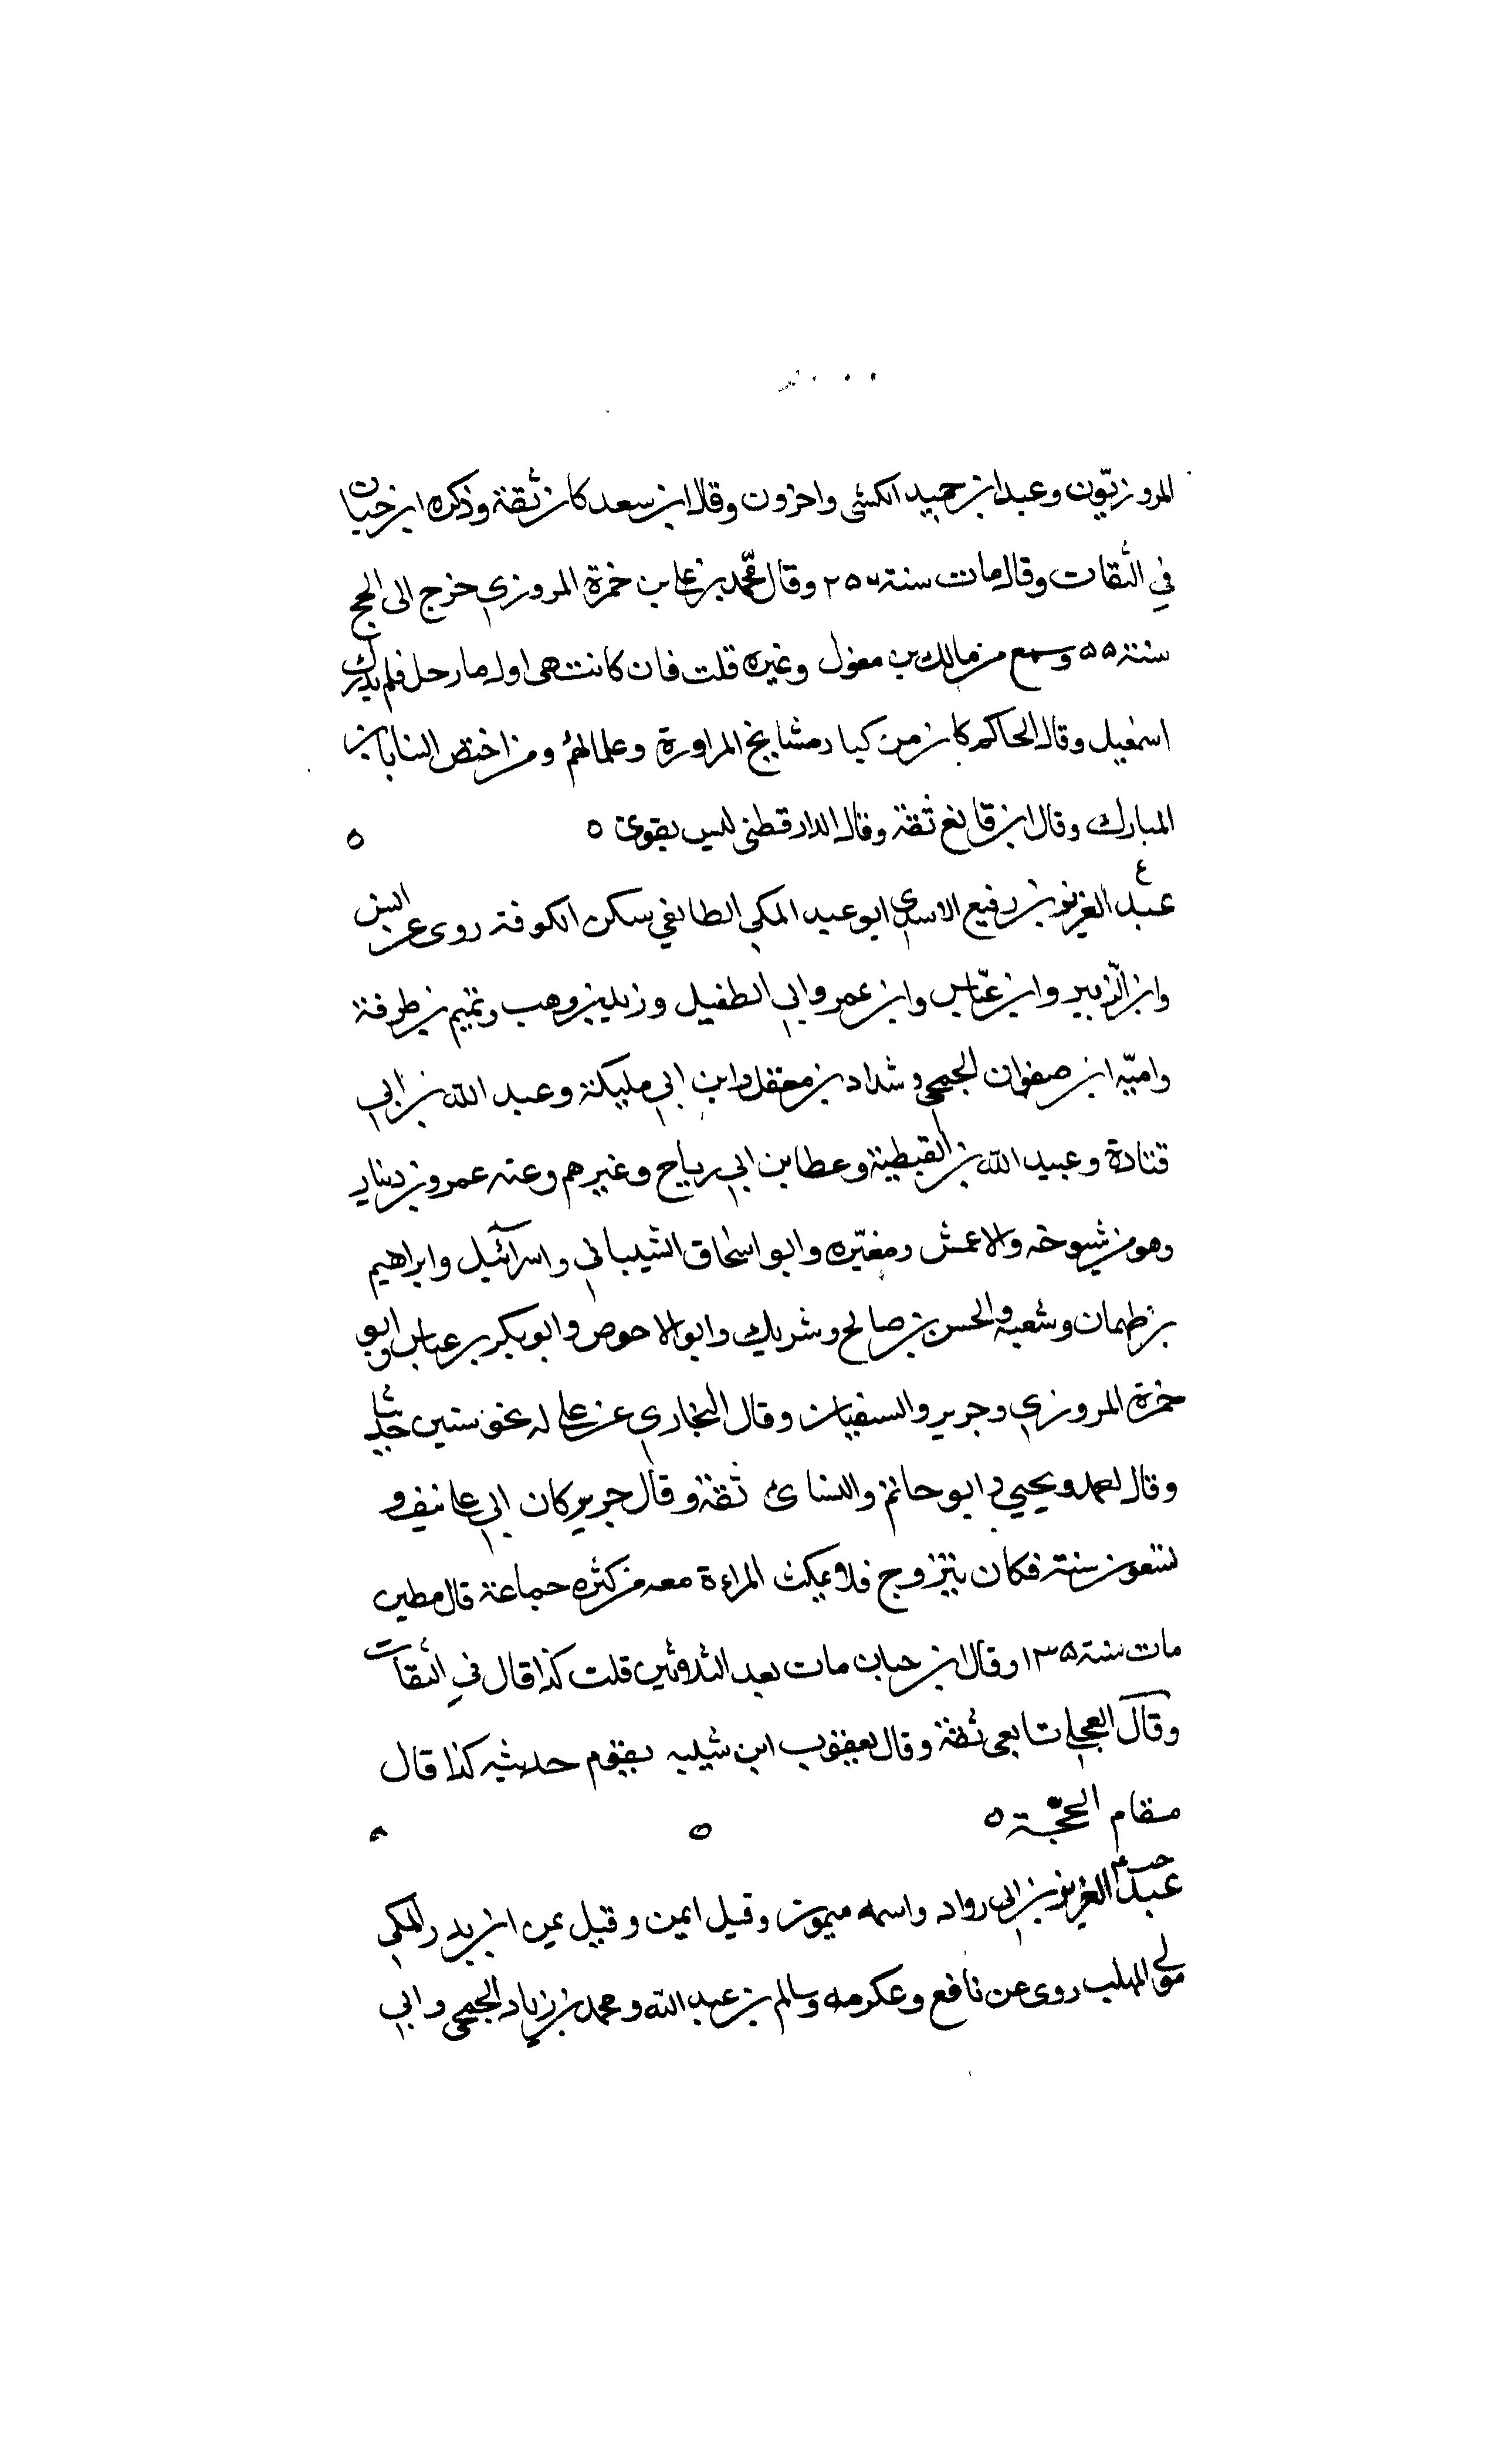 المروزيون وعبد ابن حميد الكشي واخرون وقال ابن سعد كان ثقة وذكره ابن حبان
في الثقات وقال مات سنة ٢٥٦ وقال محمد بن علي بن حمزة المروزي خرج الى الحج
سنة ٥٥ وسمع من مالك بن مغول وغيره قلت فان كانت هي اول ما رحل فلم يدرك
اسمعيل وقال الحاكم كان من كبار مشايخ المراورة وعلمائهم ومن اختص الناس بابن
المبارك وقال ابن قانع ثقة وقال الدارقطني ليس بقوي ٥ ٥
ع
عبد العزيز بن رفيع الاسدي ابو عبد المكي الطايفي سكن الكوفة روى عن انس
وابن الزبير وابن عباس وابن عمر وابي الطفيل وزيد بن وهب وتميم بن طرفة
واميه ابن صفوان الجمحي وشداد بن معقل وابن ابي مليكة وعبد الله بن ابي
قتادة وعبيد الله بن القبطية وعطا بن ابي رباح وغيرهم وعنه عمرو بن دينار
وهو من شيوخه والاعمش ومغيره وابو اسحاق الشيباني واسرآئيل وابراهيم
بن طهمان وشعبه والحسن بن صالح وشريك وابو الاحوص وابو بكر بن عياش وابو
حمزة المروزي وجرير والسفيان وقال البخاري عن علي له نحو ستين حديثا
وقال احمد ويحيي وابو حاتم والنسائ ثقة وقال جرير كان اتى عليه نيف و
تسعون سنة فكان يتزوج فلا يمكث المراءة معه من كثره جماعة قال مطين
مات سنة ١٣٥ وقال ابن حبان مات بعد الثلاثين قلت كذا قال في الثقات
وقال العجلي تابعي ثقة وقال يعقوب ابن شيبه يقوم حديثه كذا قال
مقام الحجة ٥ ٥ ٥
عبد العزيز بن ابي رواد واسمه ميمون وقيل ايمن وقيل يمن ابن بدر المكي
مولى المهلب روى عن نافع وعكرمه وسالم بن عبد الله ومحمد بن زياد الجمحي وابي